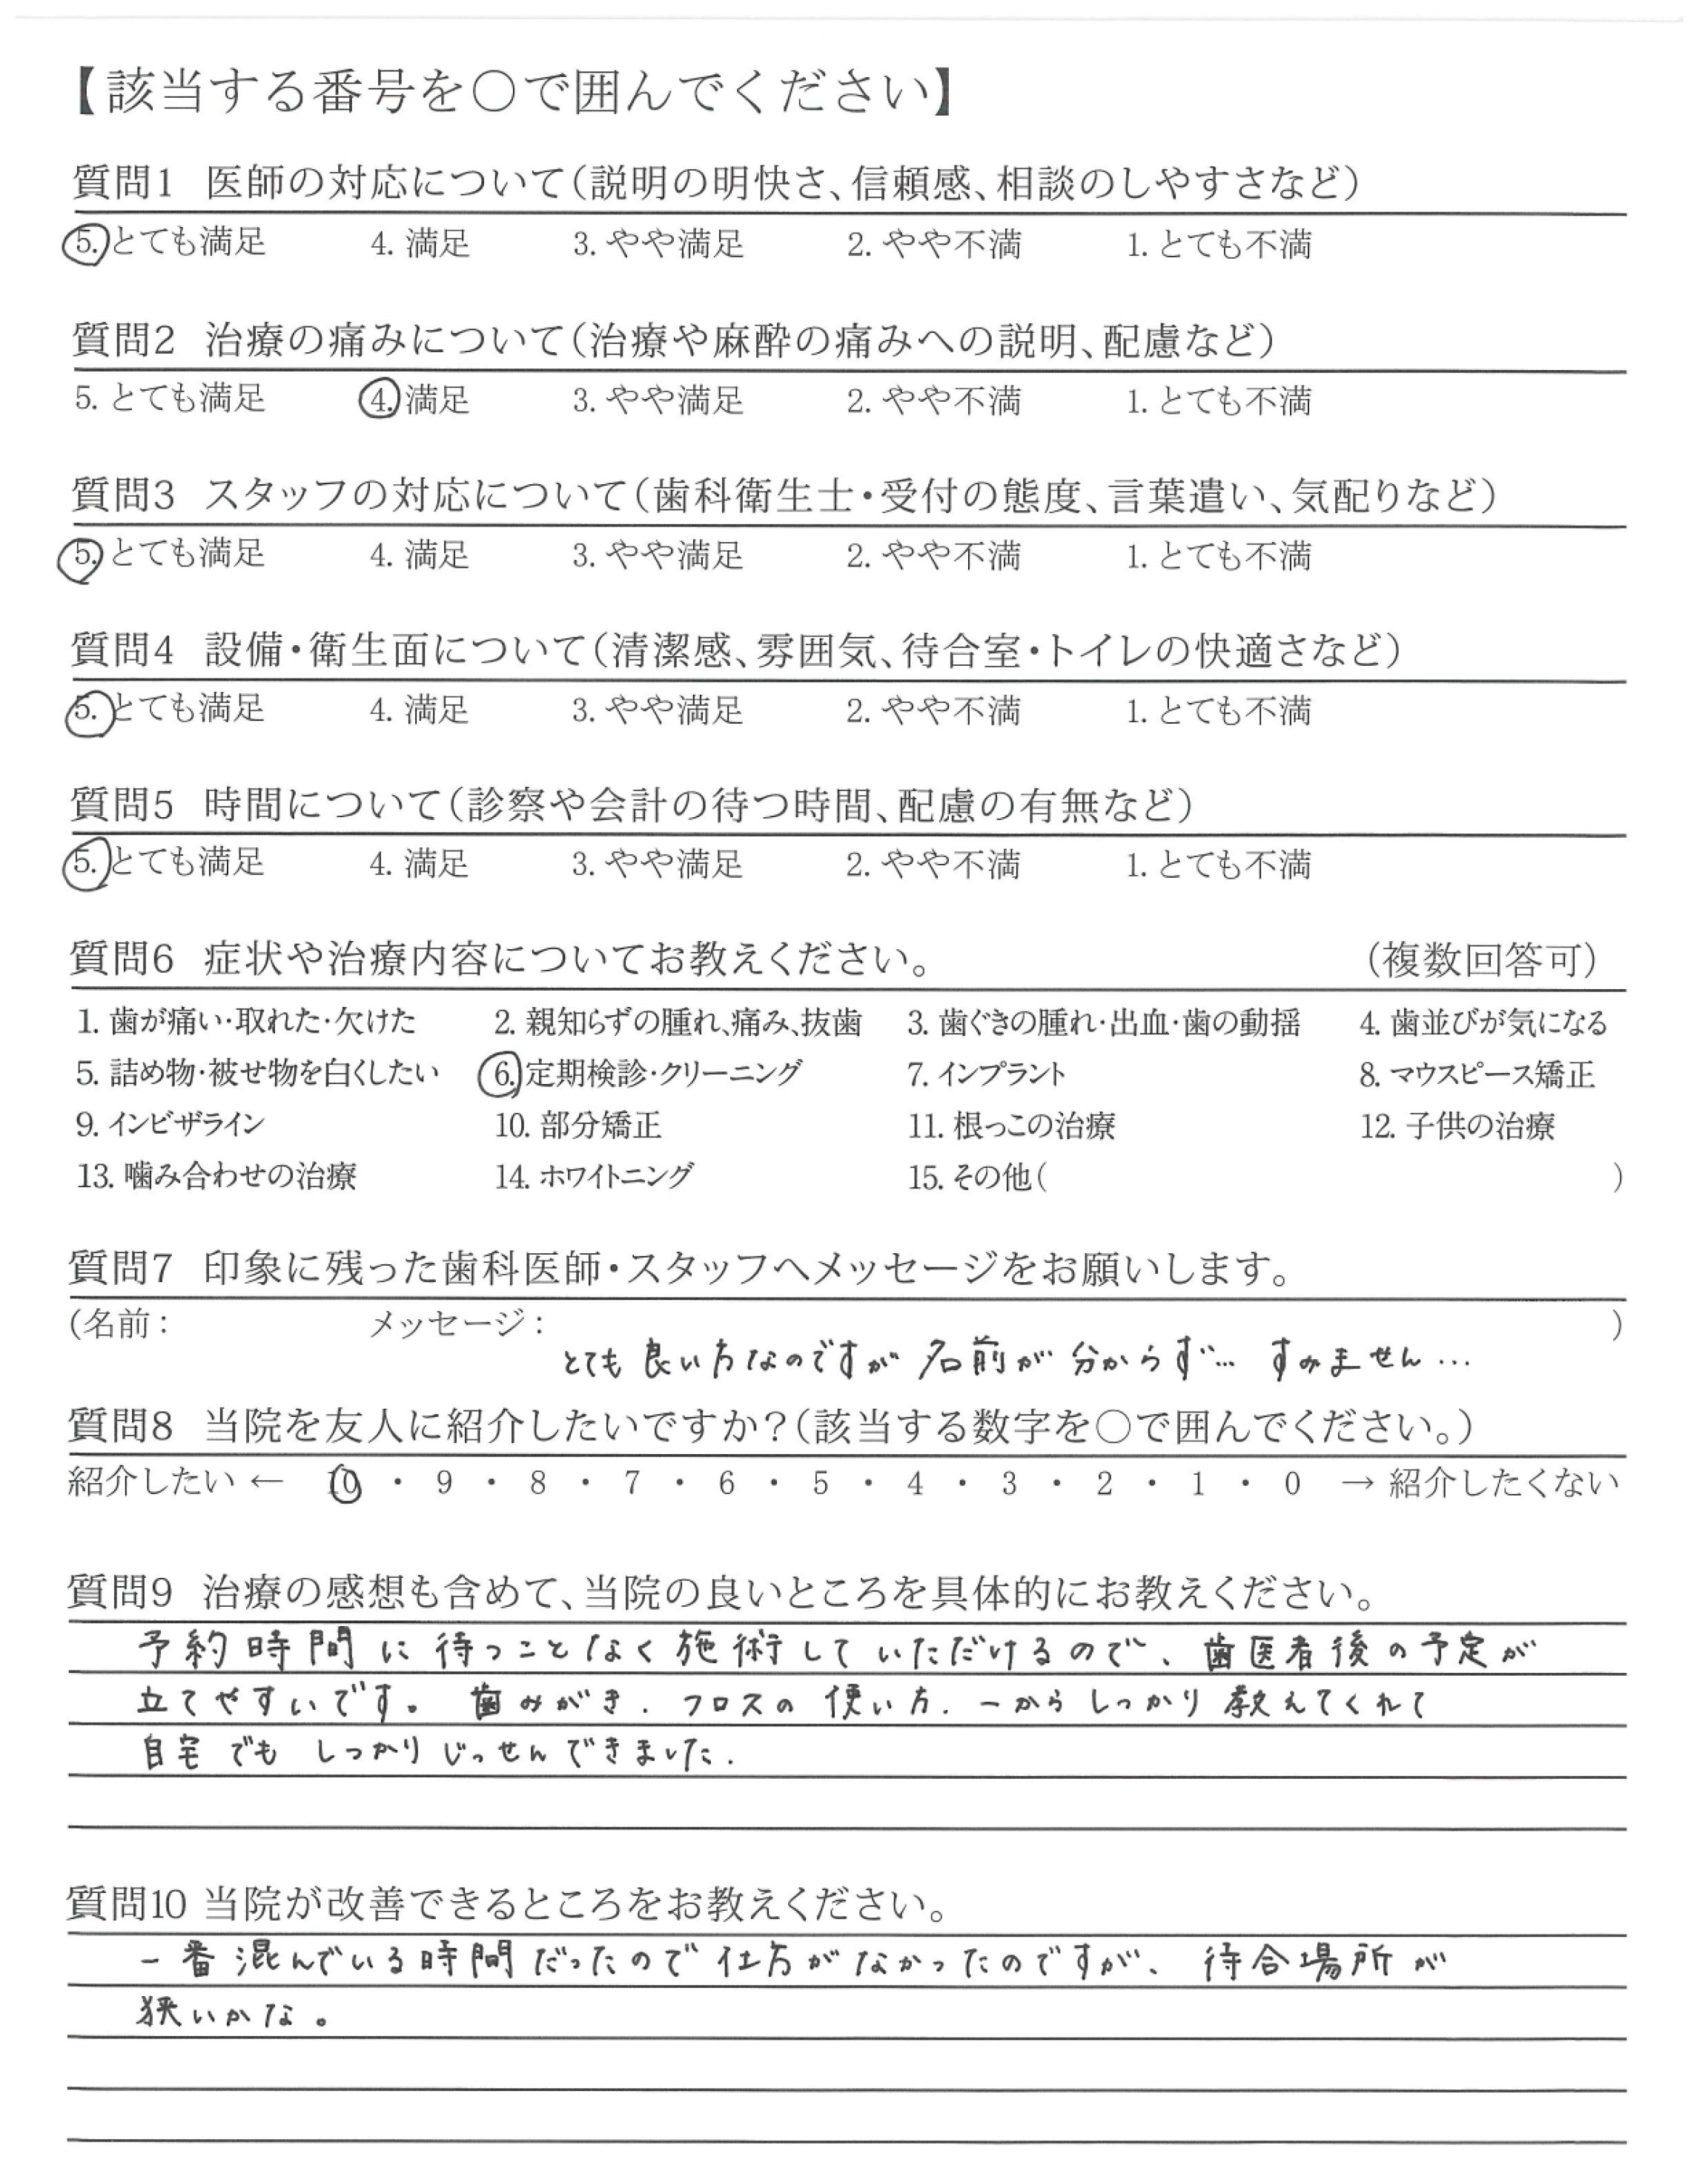 【該当する番号を〇で囲んでください】
質問1 医師の対応について（説明の明快さ、信頼感、相談のしやすさなど）
5. とても満足 4. 満足 3. やや満足 2. やや不満 1. とても不満
質問2 治療の痛みについて（治療や麻酔の痛みへの説明、配慮など）
5. とても満足 4. 満足 3. やや満足 2. やや不満 1. とても不満
質問3 スタッフの対応について（歯科衛生士・受付の態度、言葉遣い、気配りなど）
5. とても満足 4. 満足 3. やや満足 2. やや不満 1. とても不満
質問4 設備・衛生面について（清潔感、雰囲気、待合室・トイレの快適さなど）
5. とても満足 4. 満足 3. やや満足 2. やや不満 1. とても不満
質問5 時間について（診察や会計の待つ時間、配慮の有無など）
5. とても満足 4. 満足 3. やや満足 2. やや不満 1. とても不満
質問6 症状や治療内容についてお教えください。 （複数回答可）
1. 歯が痛い・取れた・欠けた 2. 親知らずの腫れ、痛み、抜歯 3. 歯ぐきの腫れ・出血・歯の動揺 4. 歯並びが気になる
5. 詰め物・被せ物を白くしたい 6. 定期検診・クリーニング 7. インプラント 8. マウスピース矯正
9. インビザライン 10. 部分矯正 11. 根っこの治療 12. 子供の治療
13. 噛み合わせの治療 14. ホワイトニング 15. その他（ ）
質問7 印象に残った歯科医師・スタッフへメッセージをお願いします。
（名前： メッセージ： ）
とても良い方なのですが名前が分からず… すみません…
質問8 当院を友人に紹介したいですか？（該当する数字を〇で囲んでください。）
紹介したい ← 10 ・ 9 ・ 8 ・ 7 ・ 6 ・ 5 ・ 4 ・ 3 ・ 2 ・ 1 ・ 0 → 紹介したくない
質問9 治療の感想も含めて、当院の良いところを具体的にお教えください。
予約時間に待つことなく施術していただけるので、歯医者後の予定が
立てやすいです。歯みがき．フロスの使い方．一からしっかり教えてくれて
自宅でもしっかりじっせんできました．
質問10 当院が改善できるところをお教えください。
一番混んでいる時間だったので仕方がなかったのですが、待合場所が
狭いかな。